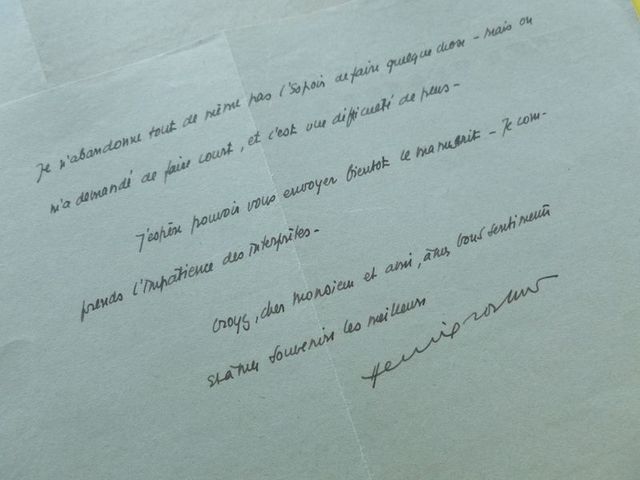 Je n'abandonne tout de même pas l'espoir de faire quelque chose – mais on
m'a demandé de faire court, et c'est une difficulté de plus –
J'espère pouvoir vous envoyer bientôt le manuscrit – Je com-
prends l'impatience des interprètes –
Croyez, cher monsieur et ami, à mes bons sentiments
et à mes souvenirs les meilleurs